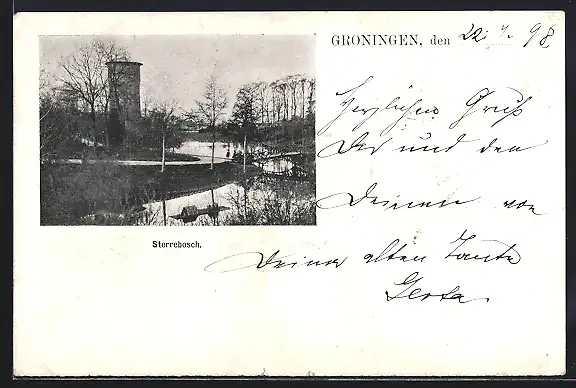 GRONINGEN, den 22 4. 98
Herzlichen Gruß
Dir und den
Deinen von
Deiner alten Tante
Gesta.
Sterrebosch.